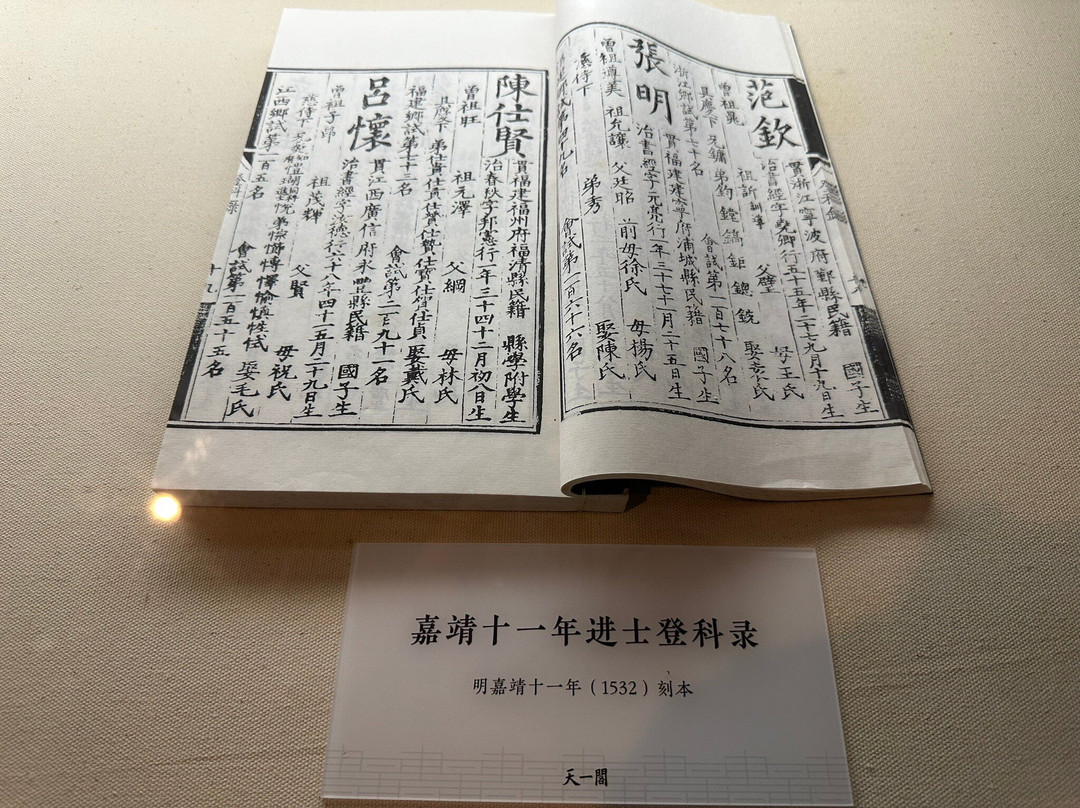 范欽
貫浙江寧波府鄞縣民籍 國子生
治書經字堯卿行五十五年二十七九月十九日生
曾祖晁 祖訢訓導 父璧 母王氏
具慶下 兄鏞 弟鈞 鏜 鎬 鉅 鏓 銃 娶袁氏
浙江鄉試第七十名 會試第一百七十八名
張明
貫福建建寧府浦城縣民籍 國子生
治書經字元亮行一年三十七十月二十五日生
曾祖道美 祖允讓 父廷昭 前母徐氏 母楊氏
慈侍下 弟秀 娶陳氏
試第四十九名 會試第一百六十六名
陳仕賢
貫福建福州府福清縣民籍 縣學附學生
治春秋字邦憲行一年三十四十二月初八日生
曾祖旺 祖元澤 父綱 母林氏
具慶下 弟仕貴 娶戴氏
福建鄉試第七十三名 會試第二百九十一名
呂懷
貫江西廣信府永豐縣民籍 國子生
治書經字汝德行六十八年四十一五月二十九日生
曾祖子昂 祖茂輝 父賢 母祝氏
慈侍下 娶毛氏
江西鄉試第一百五名 會試第一百五十五名
十九
嘉靖十一年进士登科录
明嘉靖十一年（1532）刻本
天一閣